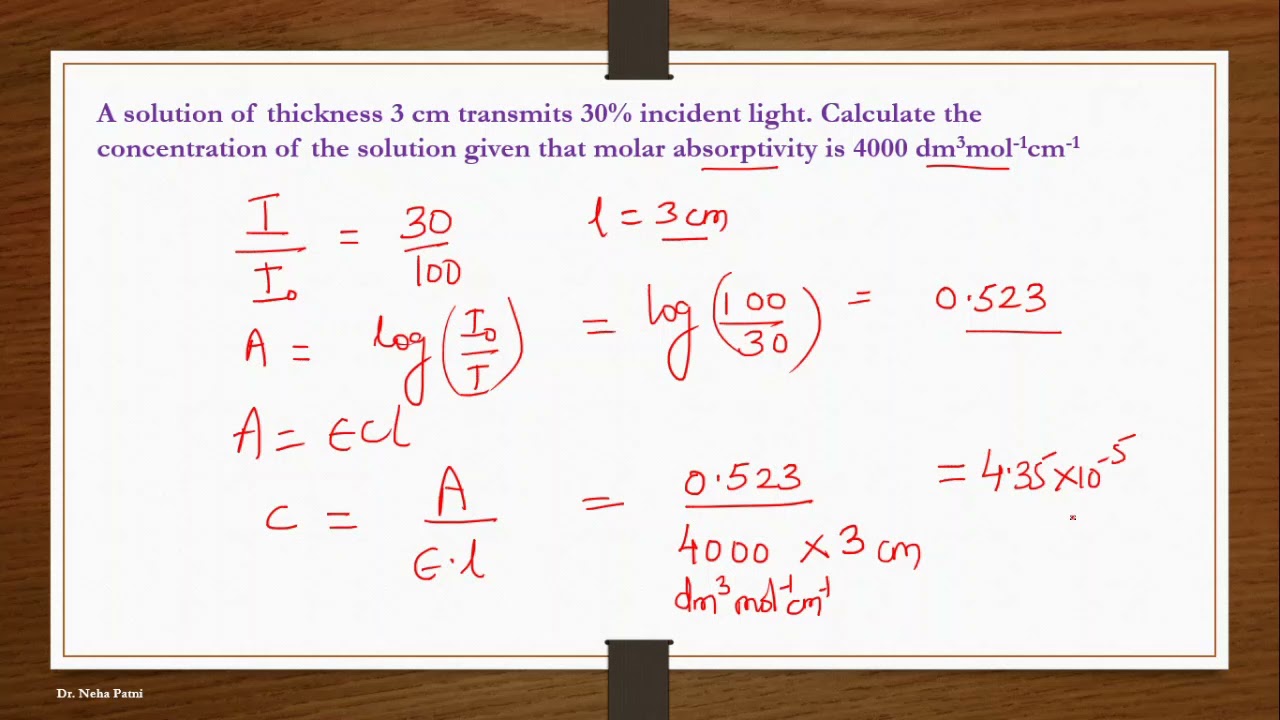 A solution of thickness 3 cm transmits 30% incident light. Calculate the
concentration of the solution given that molar absorptivity is 4000 dm³mol⁻¹cm⁻¹
I/I₀ = 30/100
l = 3 cm
A = log(I₀/I) = log(100/30) = 0.523
A = ∈cl
c = A/∈.l = 0.523/4000 × 3 cm = 4.35×10⁻⁵
dm³ mol⁻¹ cm⁻¹
Dr. Neha Patni